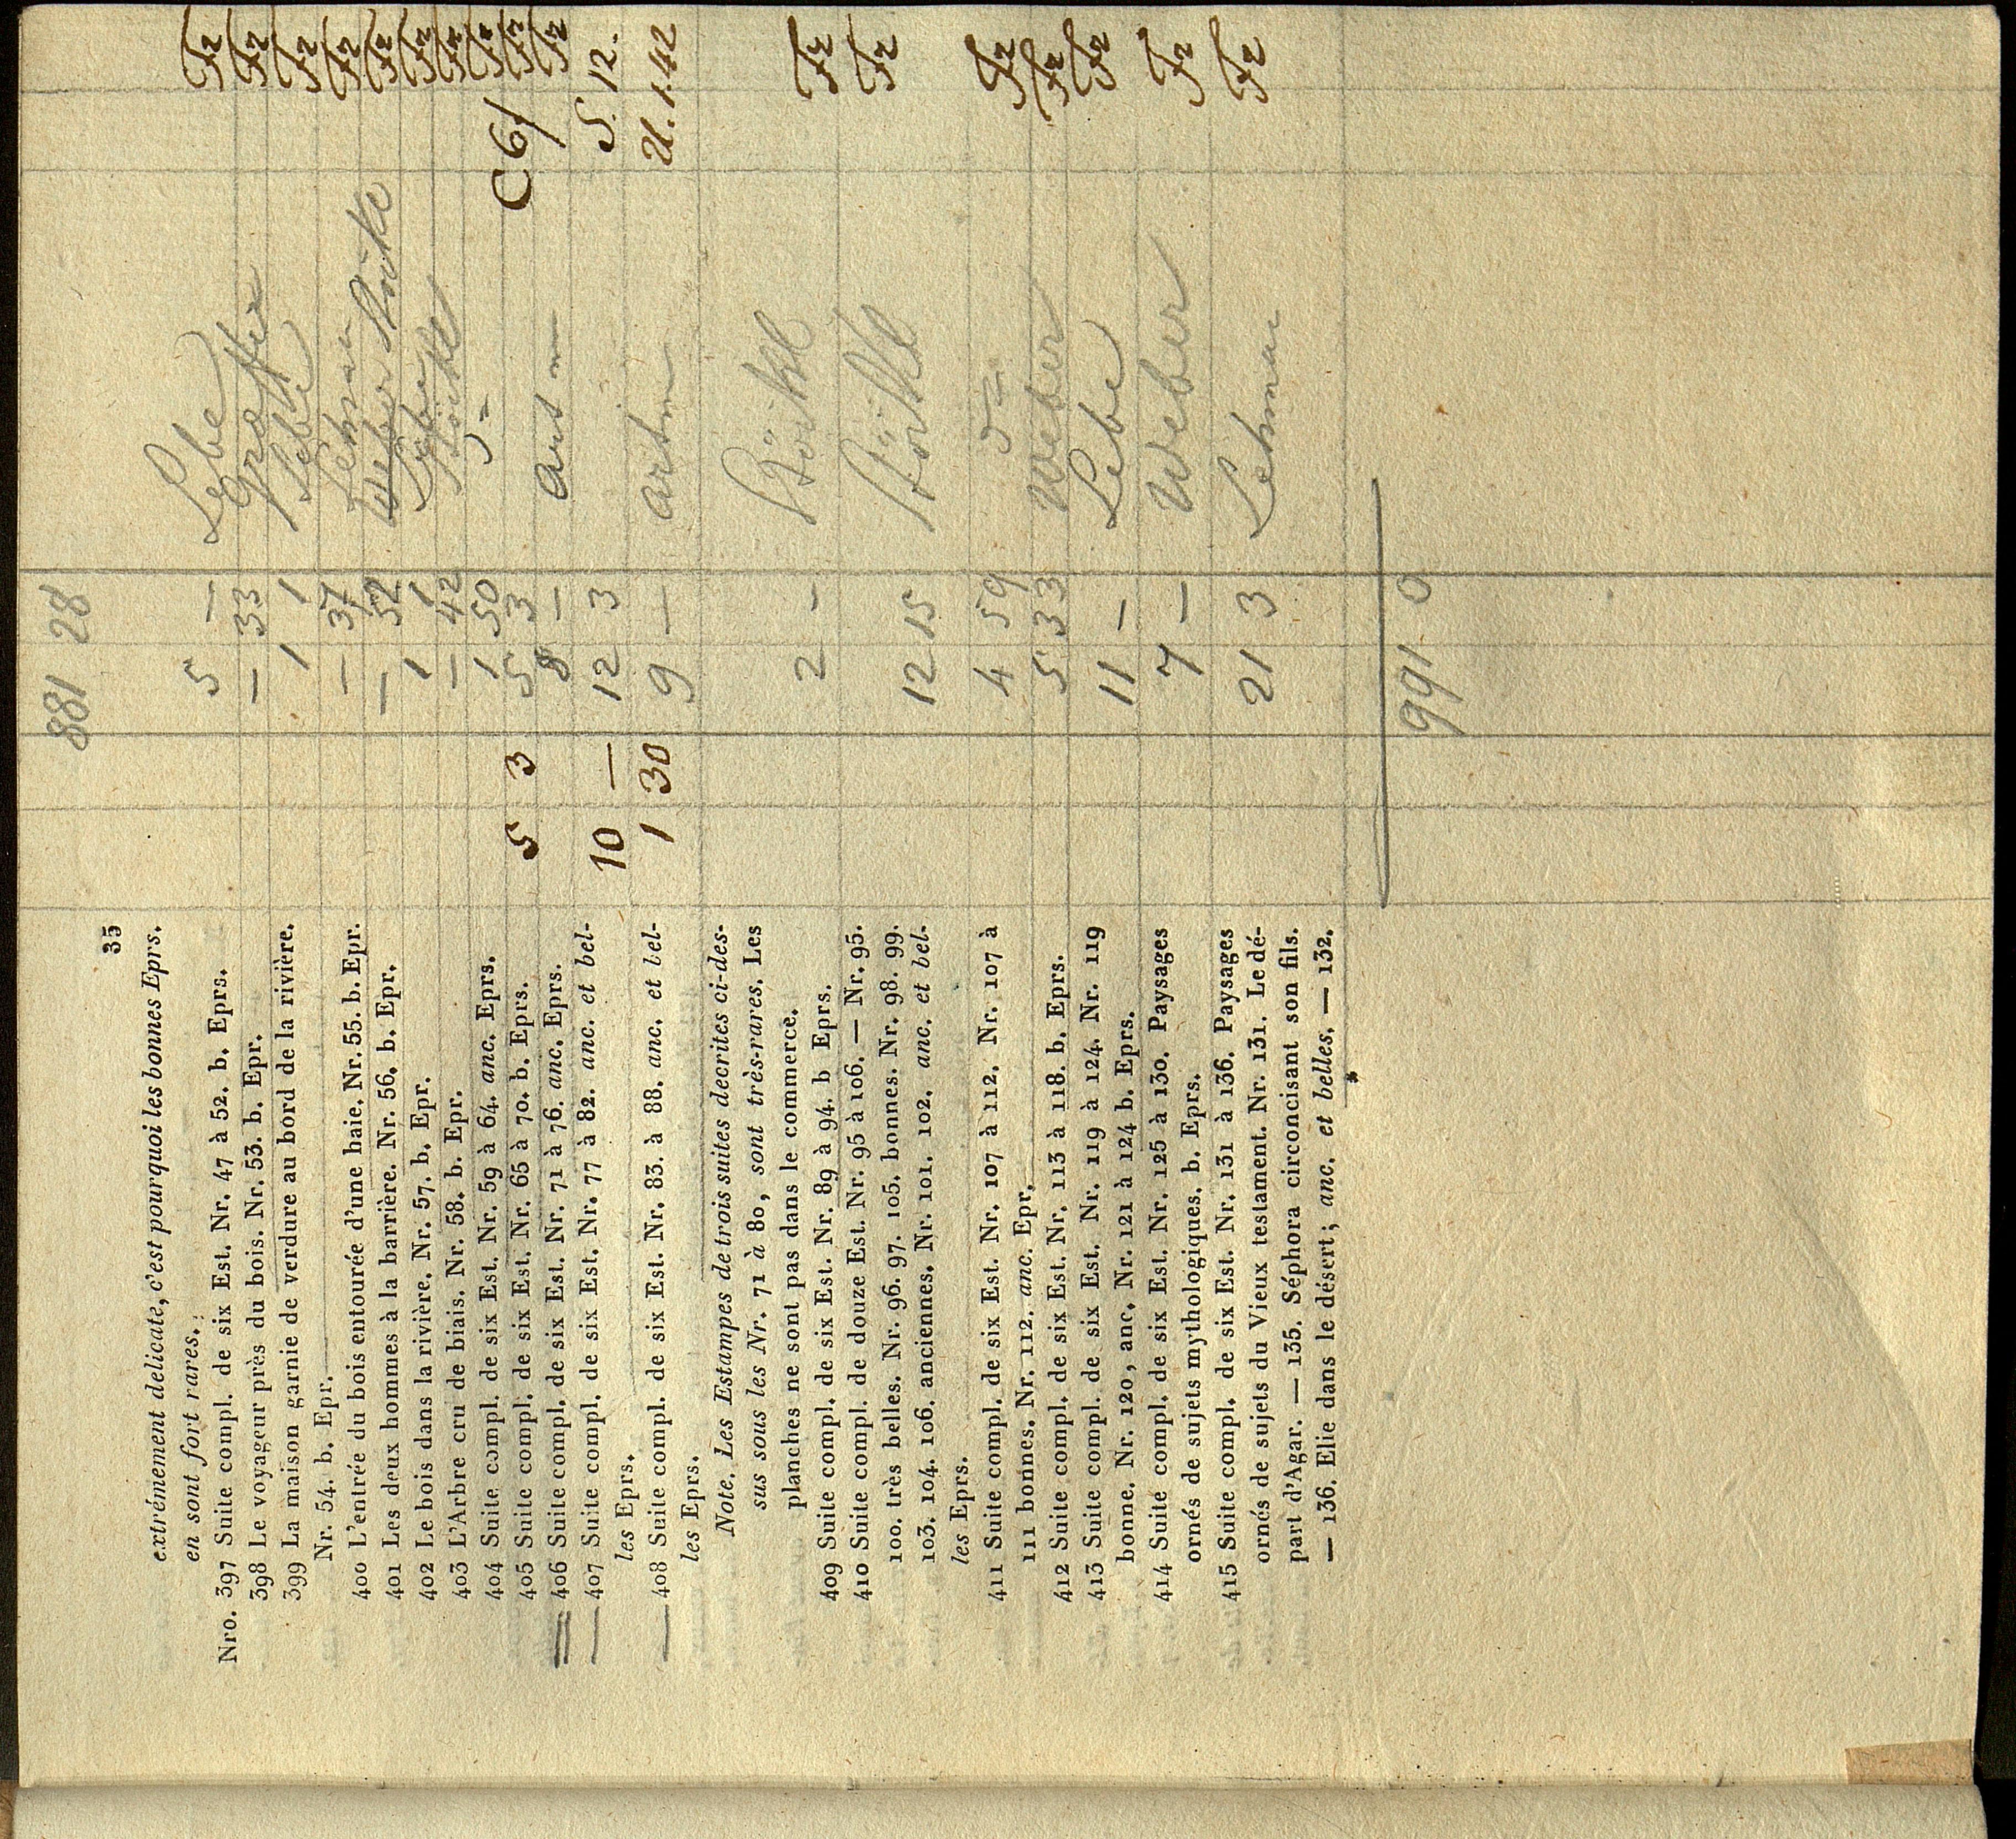 35
881 28
extrémement delicate, c'est pourquoi les bonnes Eprs.
en sont fort rares.
Nro. 397 Suite compl. de six Est. Nr. 47 à 52. b. Eprs. 5 — Lebe
398 Le voyageur près du bois. Nr. 53. b. Epr. — 33
399 La maison garnie de verdure au bord de la rivière. 1 1 Lebe
Nr. 54. b. Epr.
400 L'entrée du bois entourée d'une haie. Nr. 55. b. Epr. — 37
401 Les deux hommes à la barrière. Nr. 56. b. Epr. — 52
402 Le bois dans la rivière. Nr. 57. b. Epr. 1 1 Lebe
403 L'Arbre cru de biais. Nr. 58. b. Epr. — 42
404 Suite compl. de six Est. Nr. 59 à 64. anc. Eprs. 1 50
405 Suite compl. de six Est. Nr. 65 à 70. b. Eprs. 5 3 5 3 C 6/
406 Suite compl. de six Est. Nr. 71 à 76. anc. Eprs. 8 —
— 407 Suite compl. de six Est. Nr. 77 à 82. anc. et bel- 10 — 12 3 S. 12.
les Eprs.
— 408 Suite compl. de six Est. Nr. 83. à 88. anc. et bel- 1 30 9 — 1.42
les Eprs.
Note. Les Estampes de trois suites decrites ci-des-
sus sous les Nr. 71 à 80, sont très-rares. Les
planches ne sont pas dans le commerce.
409 Suite compl. de six Est. Nr. 89 à 94. b Eprs. 2 - Böckl
410 Suite compl. de douze Est. Nr. 95 à 106. — Nr. 95. 12 15 Böckl
100. très belles. Nr. 96. 97. 105. bonnes. Nr. 98. 99.
103. 104. 106. anciennes. Nr. 101. 102. anc. et bel-
les Eprs.
411 Suite compl. de six Est. Nr. 107 à 112. Nr. 107 à 4 59
111 bonnes. Nr. 112. anc. Epr.
412 Suite compl. de six Est. Nr. 113 à 118. b. Eprs. 5 33 Weber
413 Suite compl. de six Est. Nr. 119 à 124. Nr. 119 11 — Lebe
bonne. Nr. 120, anc. Nr. 121 à 124 b. Eprs.
414 Suite compl. de six Est. Nr. 125 à 130. Paysages 7 — Weber
ornés de sujets mythologiques. b. Eprs.
415 Suite compl. de six Est. Nr. 131 à 136. Paysages 21 3 Lehman
ornés de sujets du Vieux testament. Nr. 131. Le dé-
part d'Agar. — 135. Séphora circoncisant son fils.
— 136. Elie dans le désert; anc. et belles. — 132.
991 0